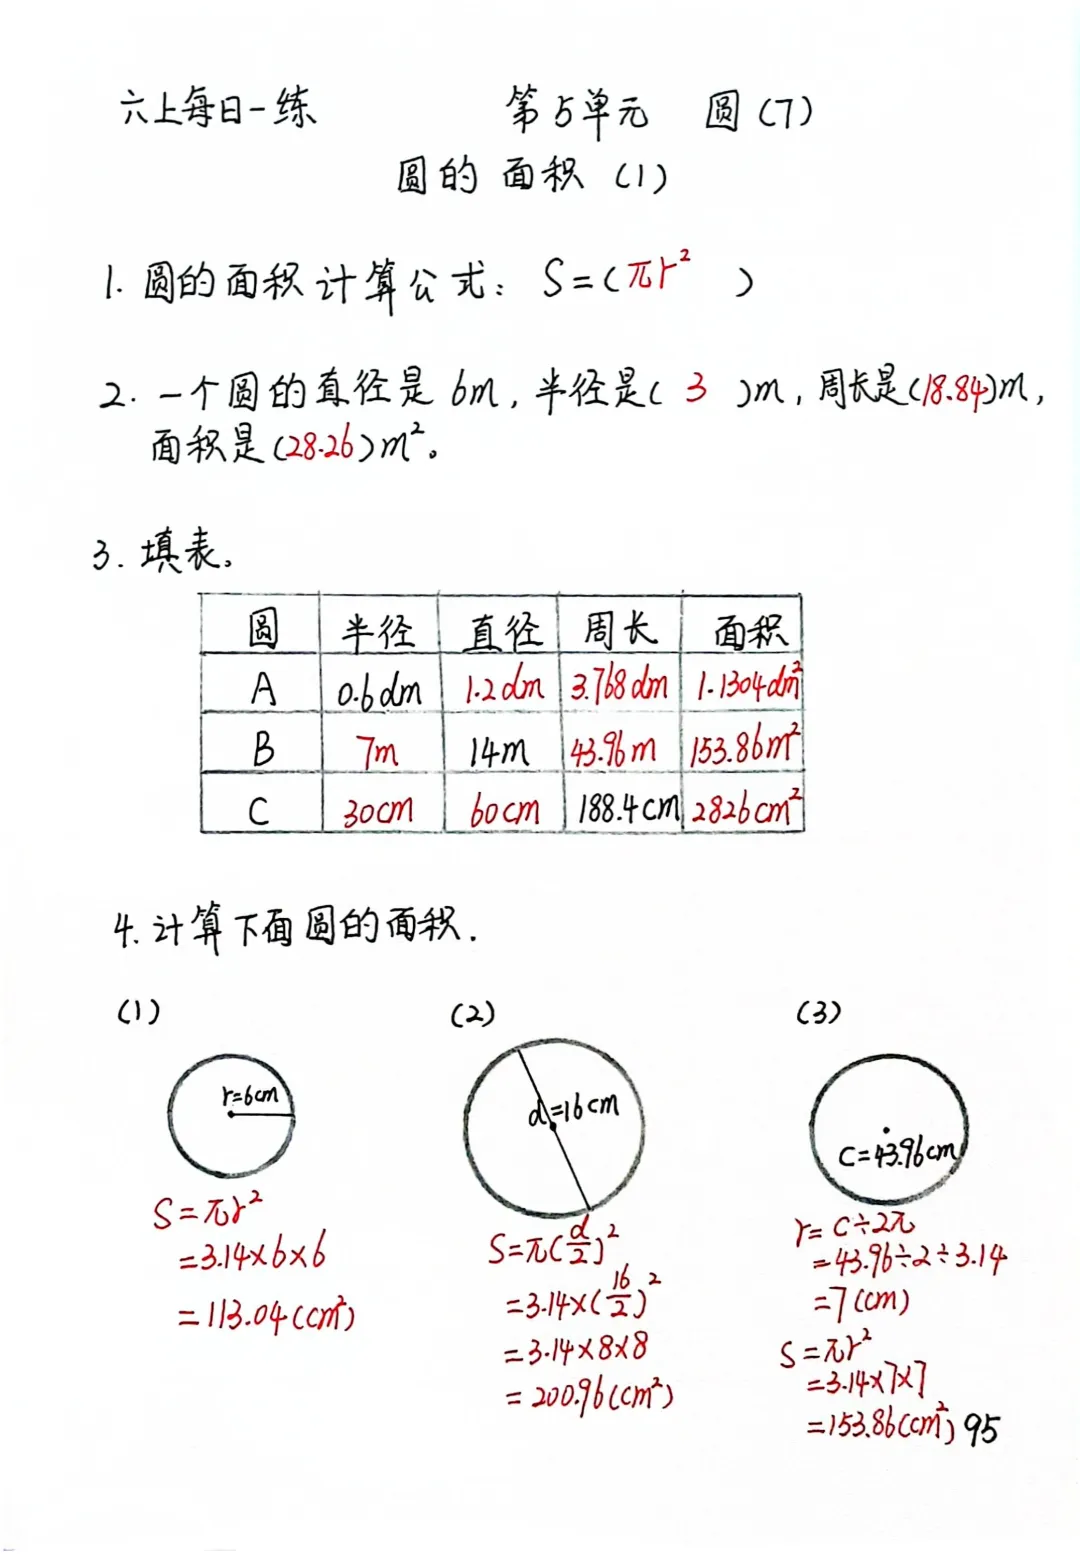 六上每日一练 第5单元 圆(7)
圆的面积(1)
1. 圆的面积计算公式: S=(πr²)
2. 一个圆的直径是6m, 半径是( 3 )m, 周长是(18.84)m,
面积是(28.26)m²。
3. 填表。
圆 半径 直径 周长 面积
A 0.6dm 1.2dm 3.768dm 1.1304dm²
B 7m 14m 43.96m 153.86m²
C 30cm 60cm 188.4cm 2826cm²
4. 计算下面圆的面积.
(1) (2) (3)
r=6cm
d=16cm
C=43.96cm
S=πr²
=3.14×6×6
=113.04(cm²)
S=π(d/2)²
=3.14×(16/2)²
=3.14×8×8
=200.96(cm²)
r=C÷2π
=43.96÷2÷3.14
=7(cm)
S=πr²
=3.14×7×7
=153.86(cm²) 95